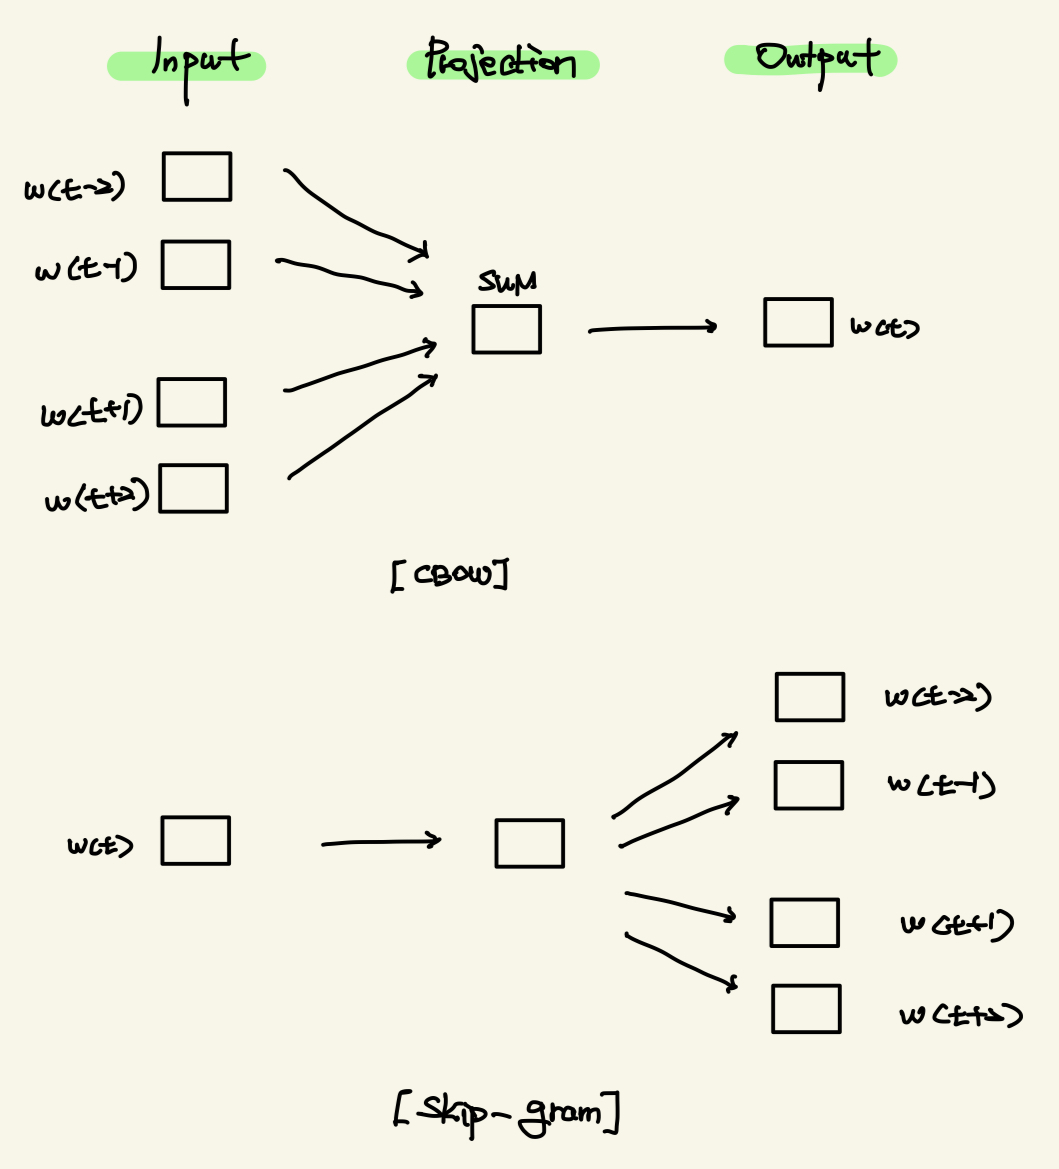 Input Projection Output
w(t-2)
w(t-1)
SUM
w(t)
w(t+1)
w(t+2)
[CBOW]
w(t-2)
w(t-1)
w(t)
w(t+1)
w(t+2)
[Skip-gram]